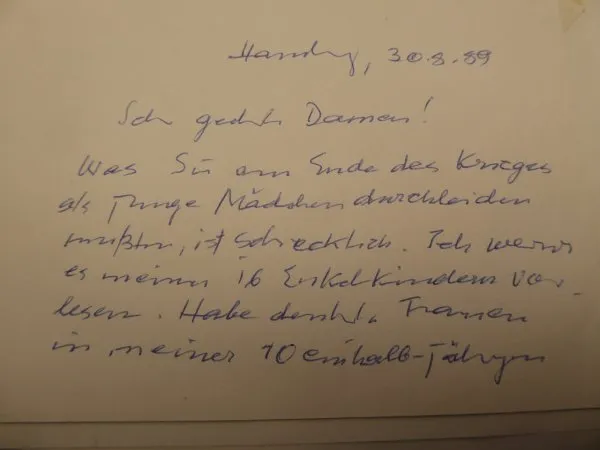 Hamburg, 30.8.89
Sehr geehrte Damen!
Was Sie am Ende des Krieges
als junge Mädchen durchleiden
mußten, ist schrecklich. Ich werde
es meinen 16 Enkelkindern vor-
lesen. Habe deutsche Frauen
in meiner 10 einhalb-jährigen